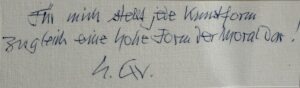 Für mich stellt jede Kunstform
zugleich eine hohe Form der Moral dar!